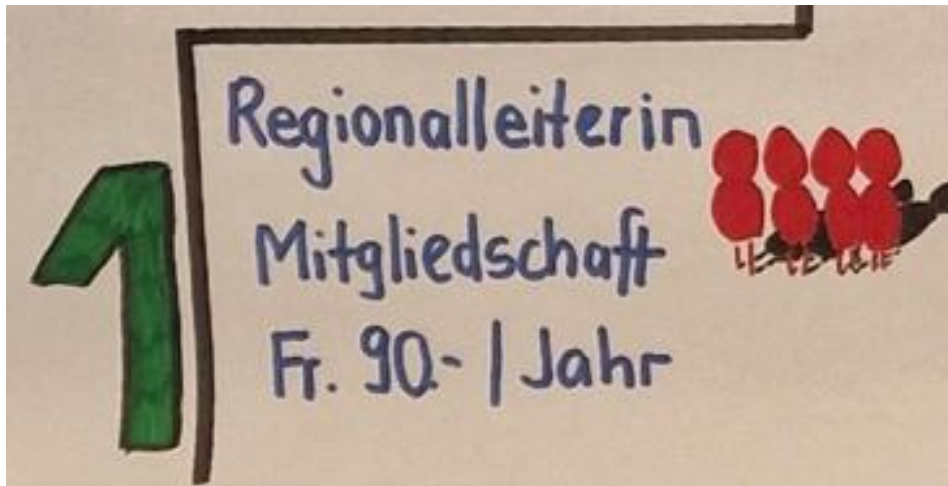 1
Regionalleiterin
Mitgliedschaft
Fr. 90.- | Jahr